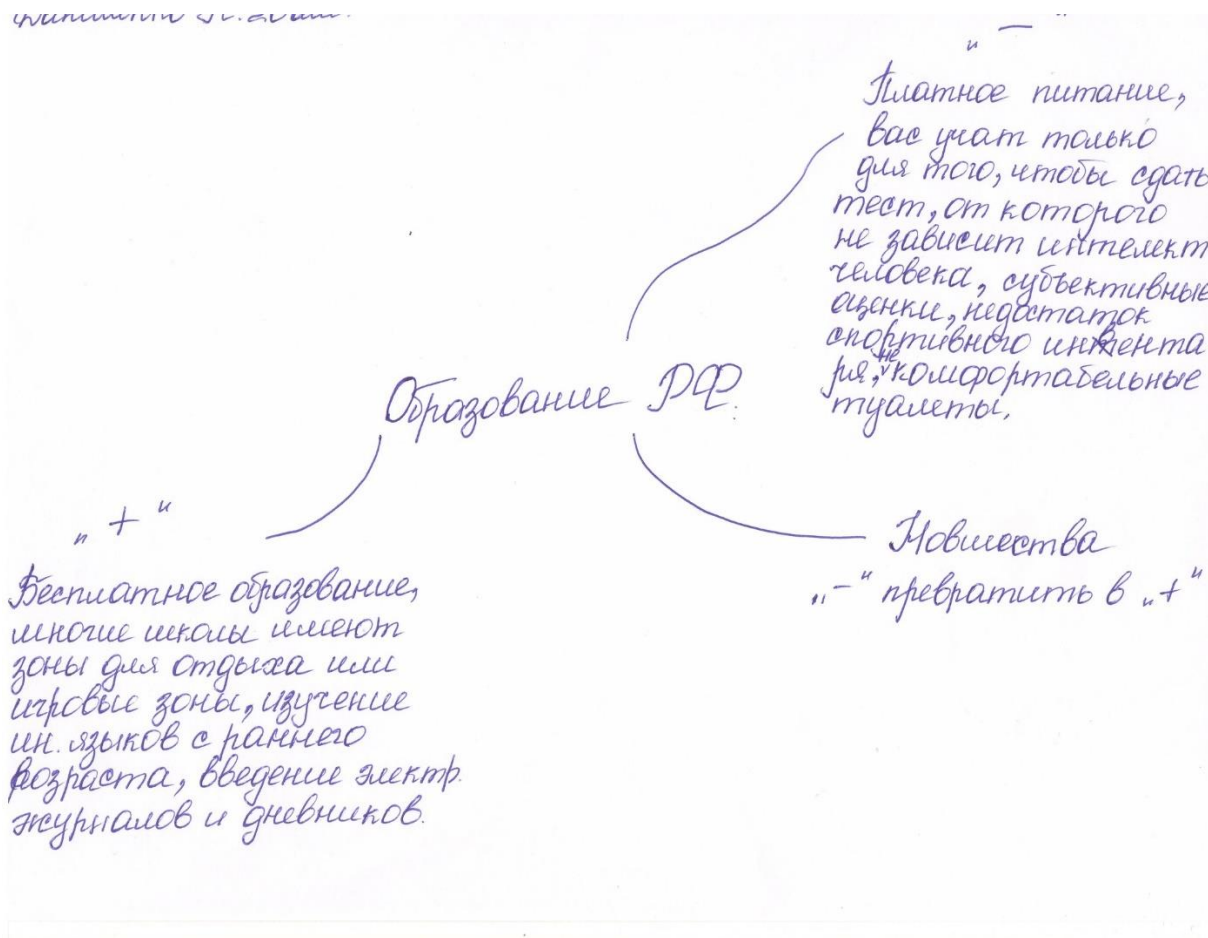 „ — “
Платное питание,
вас учат только
для того, чтобы сдать
тест, от которого
не зависит интелект
человека, субъективные
оценки, недостаток
спортивного инвента
ря, не комфортабельные
туалеты.
Образование РФ.
„ + “
Бесплатное образование,
многие школы имеют
зоны для отдыха или
игровые зоны, изучение
ин. языков с раннего
возраста, введение электр.
журналов и дневников.
Новшества
„–“ превратить в „+“